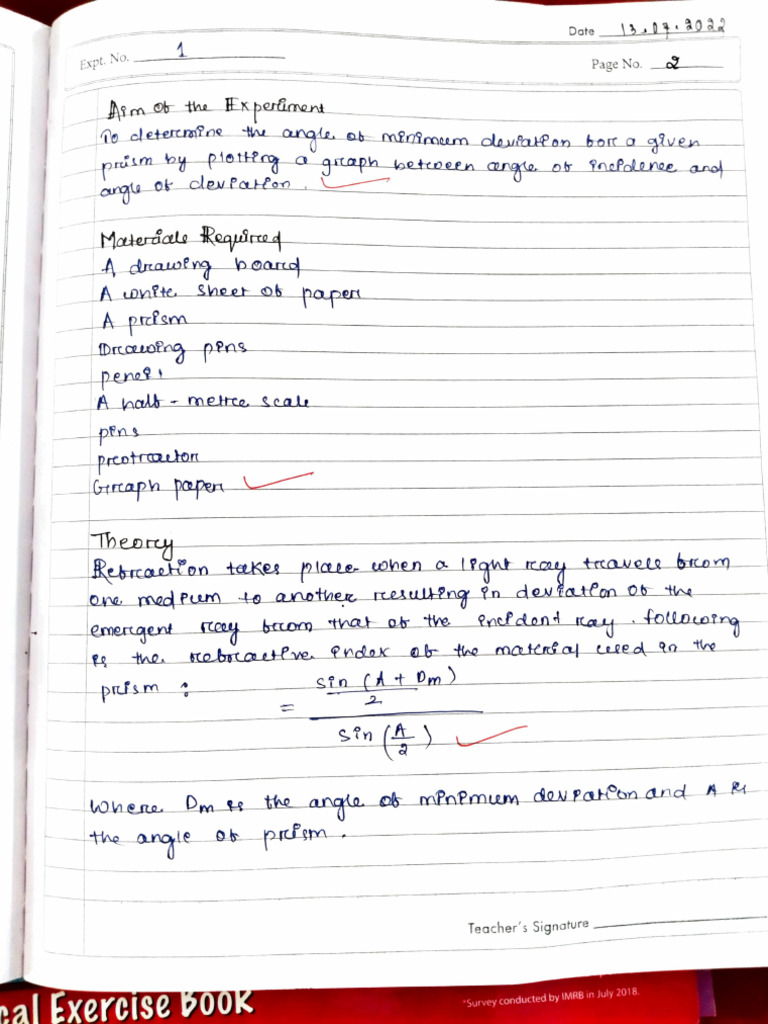 Date 13.07.2022
Expt. No. 1
Page No. 2
Aim of the Experiment
To determine the angle of minimum deviation for a given
prism by plotting a graph between angle of incidence and
angle of deviation.
Materials Required
A drawing board
A white sheet of paper
A prism
Drawing pens
pencil
A half - metre scale
pins
protractor
Graph paper
Theory
Refraction takes place when a light ray travels from
one medium to another resulting in deviation of the
emergent ray from that of the incident ray. following
is the refractive index of the material used in the
prism :
= sin (A + Dm) / 2
sin (A/2)
Where Dm is the angle of minimum deviation and A is
the angle of prism.
Teacher's Signature
cal Exercise Book
*Survey conducted by IMRB in July 2018.